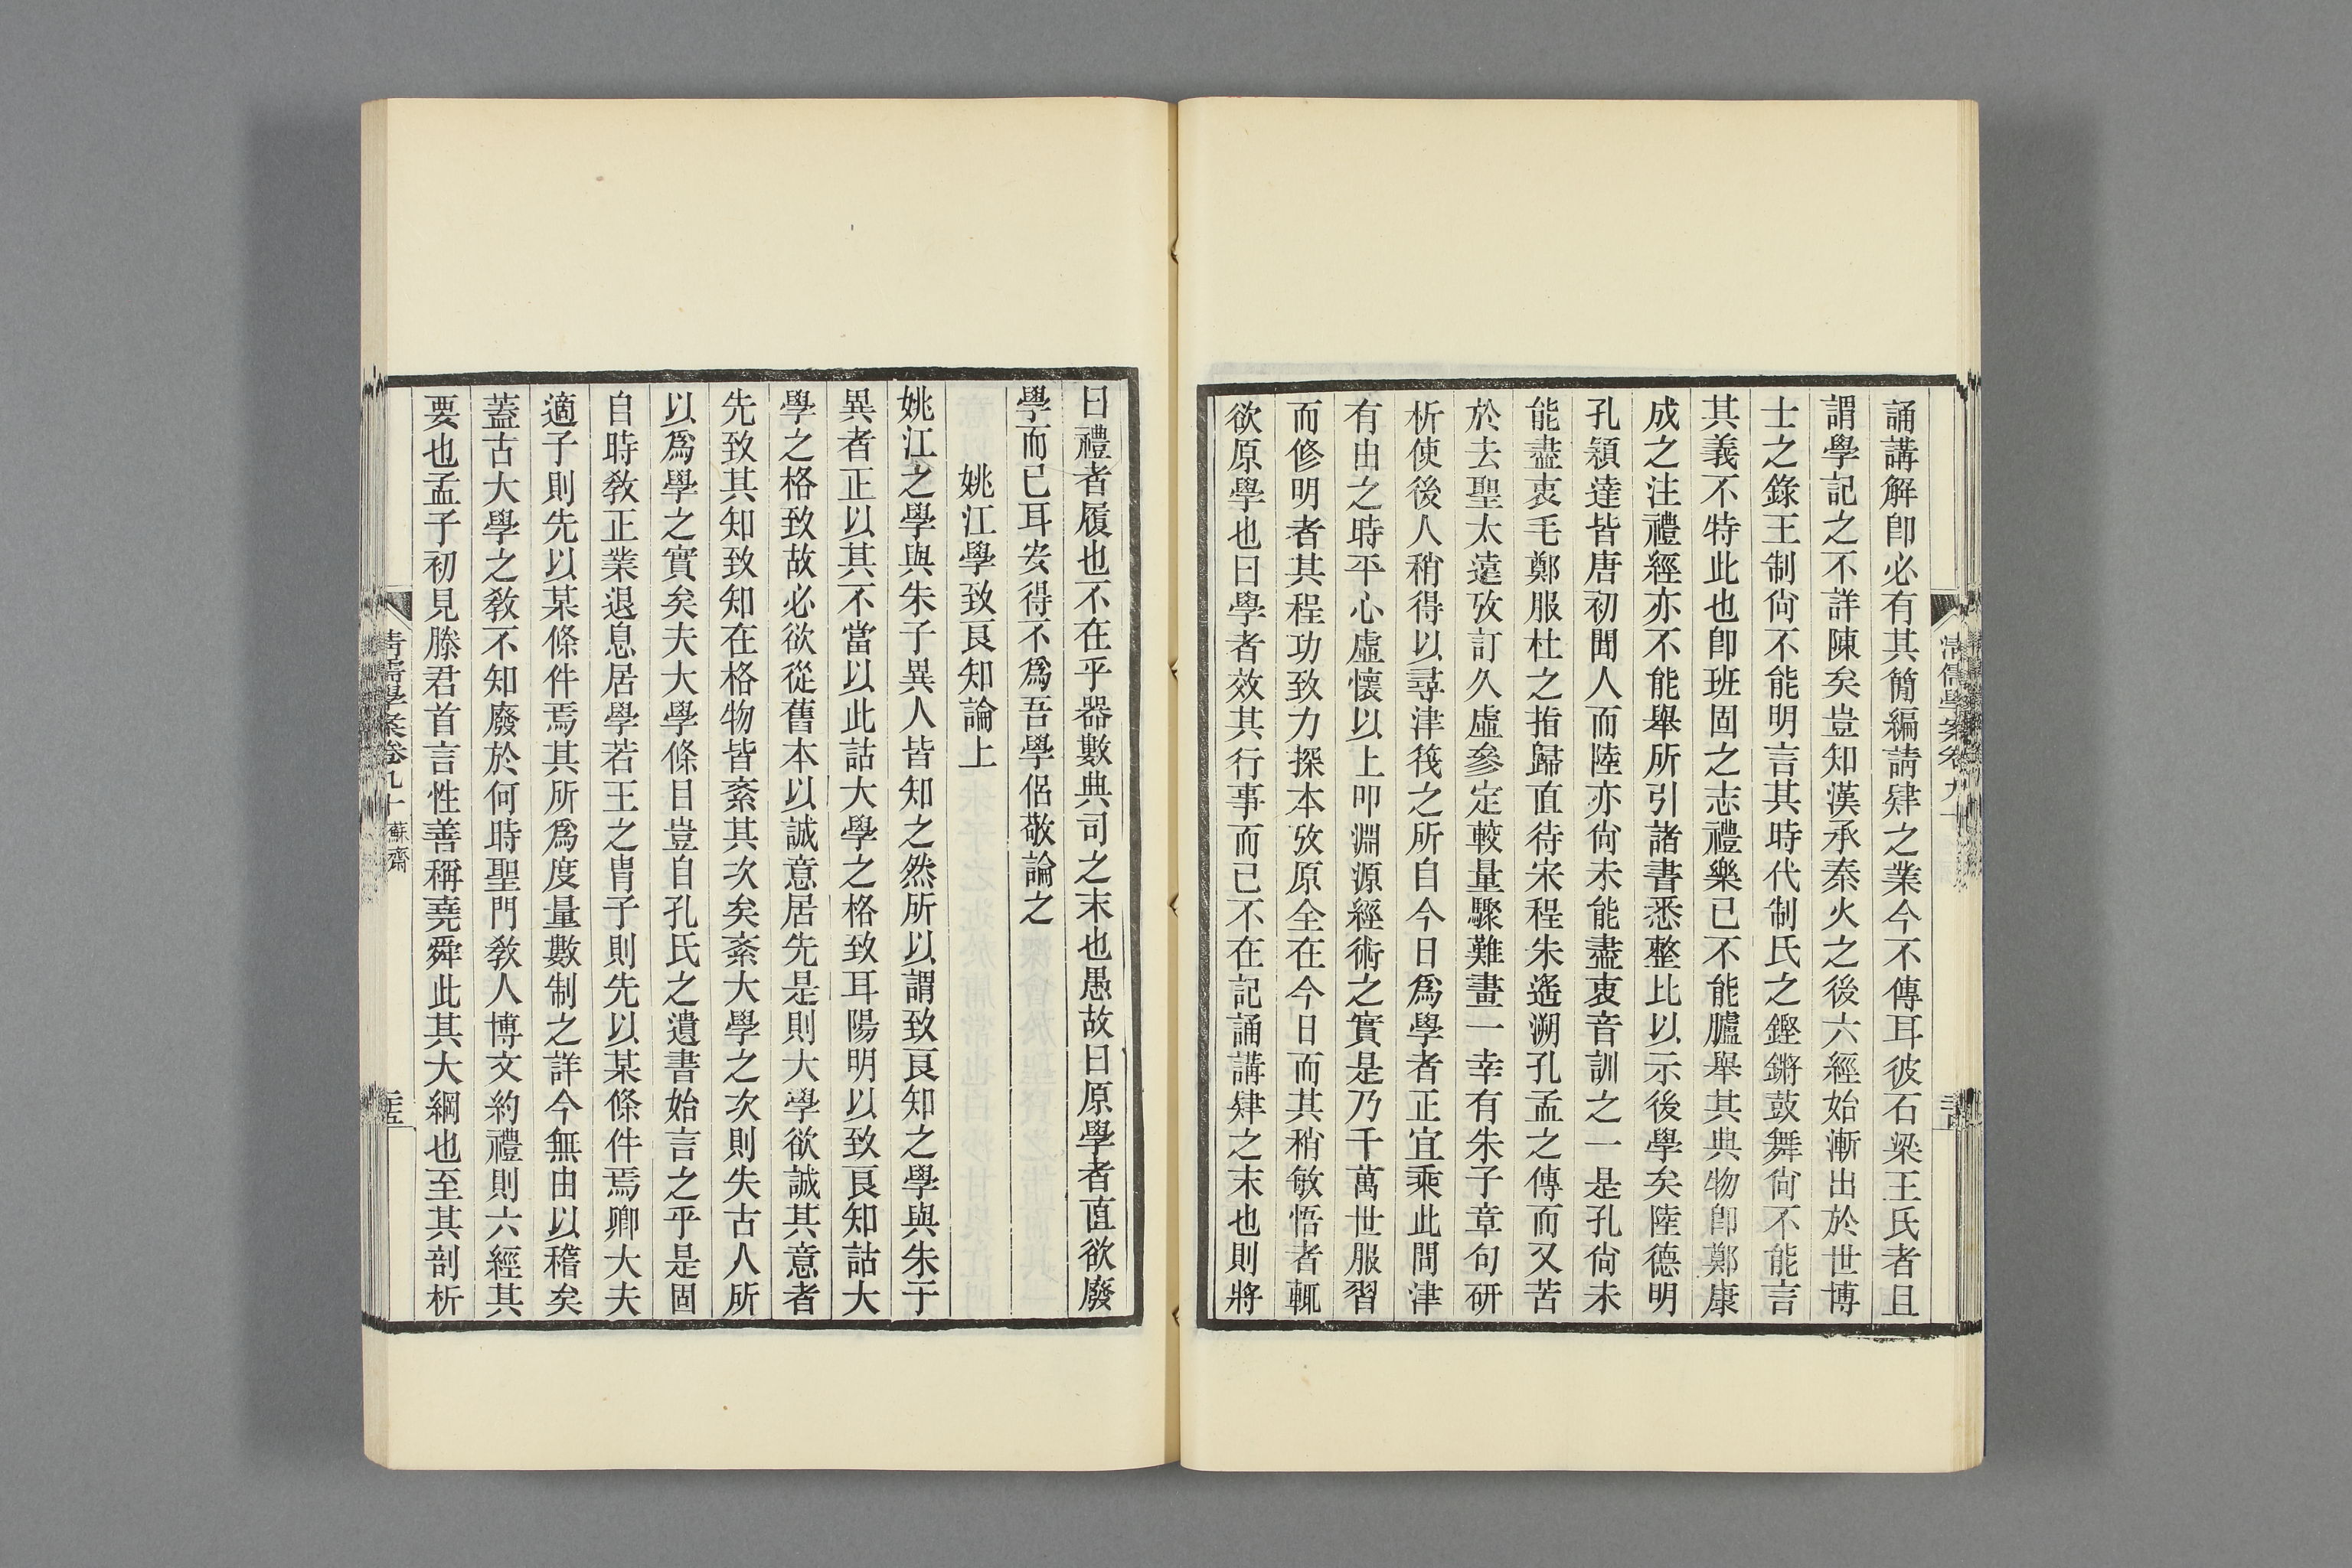 誦講解卽必有其簡編請肄之業今不傳耳彼石梁王氏者且
謂學記之不詳陳矣豈知漢承秦火之後六經始漸出於世博
士之錄王制尙不能明言其時代制氏之鏗鏘鼓舞尙不能言
其義不特此也卽班固之志禮樂已不能臚舉其典物卽鄭康
成之注禮經亦不能舉所引諸書悉整比以示後學矣陸德明
孔穎達皆唐初聞人而陸亦尙未能盡衷音訓之一是孔尙未
能盡衷毛鄭服杜之指歸直待宋程朱遙溯孔孟之傳而又苦
於去聖太遠攷訂久虛參定較量驟難畫一幸有朱子章句研
析使後人稍得以尋津筏之所自今日爲學者正宜乘此問津
有由之時平心虛懷以上叩淵源經術之實是乃千萬世服習
而修明者其程功致力探本攷原全在今日而其稍敏悟者輒
欲原學也曰學者效其行事而已不在記誦講肄之末也則將
曰禮者履也不在乎器數典司之末也愚故曰原學者直欲廢
學而已耳安得不爲吾學侶敬論之
姚江學致良知論上
姚江之學與朱子異人皆知之然所以謂致良知之學與朱子
異者正以其不當以此詁大學之格致耳陽明以致良知詁大
學之格致故必欲從舊本以誠意居先是則大學欲誠其意者
先致其知致知在格物皆紊其次矣紊大學之次則失古人所
以爲學之實矣夫大學條目豈自孔氏之遺書始言之乎是固
自時敎正業退息居學若王之冑子則先以某條件焉卿大夫
適子則先以某條件焉其所爲度量數制之詳今無由以稽矣
蓋古大學之敎不知廢於何時聖門敎人博文約禮則六經其
要也孟子初見滕君首言性善稱堯舜此其大綱也至其剖析
清儒學案卷九十 蘇齋